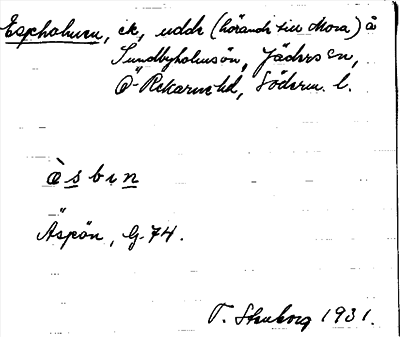 Espholmen, ik, udde (hörande till Mora) å
Sundbyholmsön, Jäders sn,
Ö-Rekarne hd, Söderm. l.
è s b ı n
Äspön, G. 74.
T. Stenborg 1931.